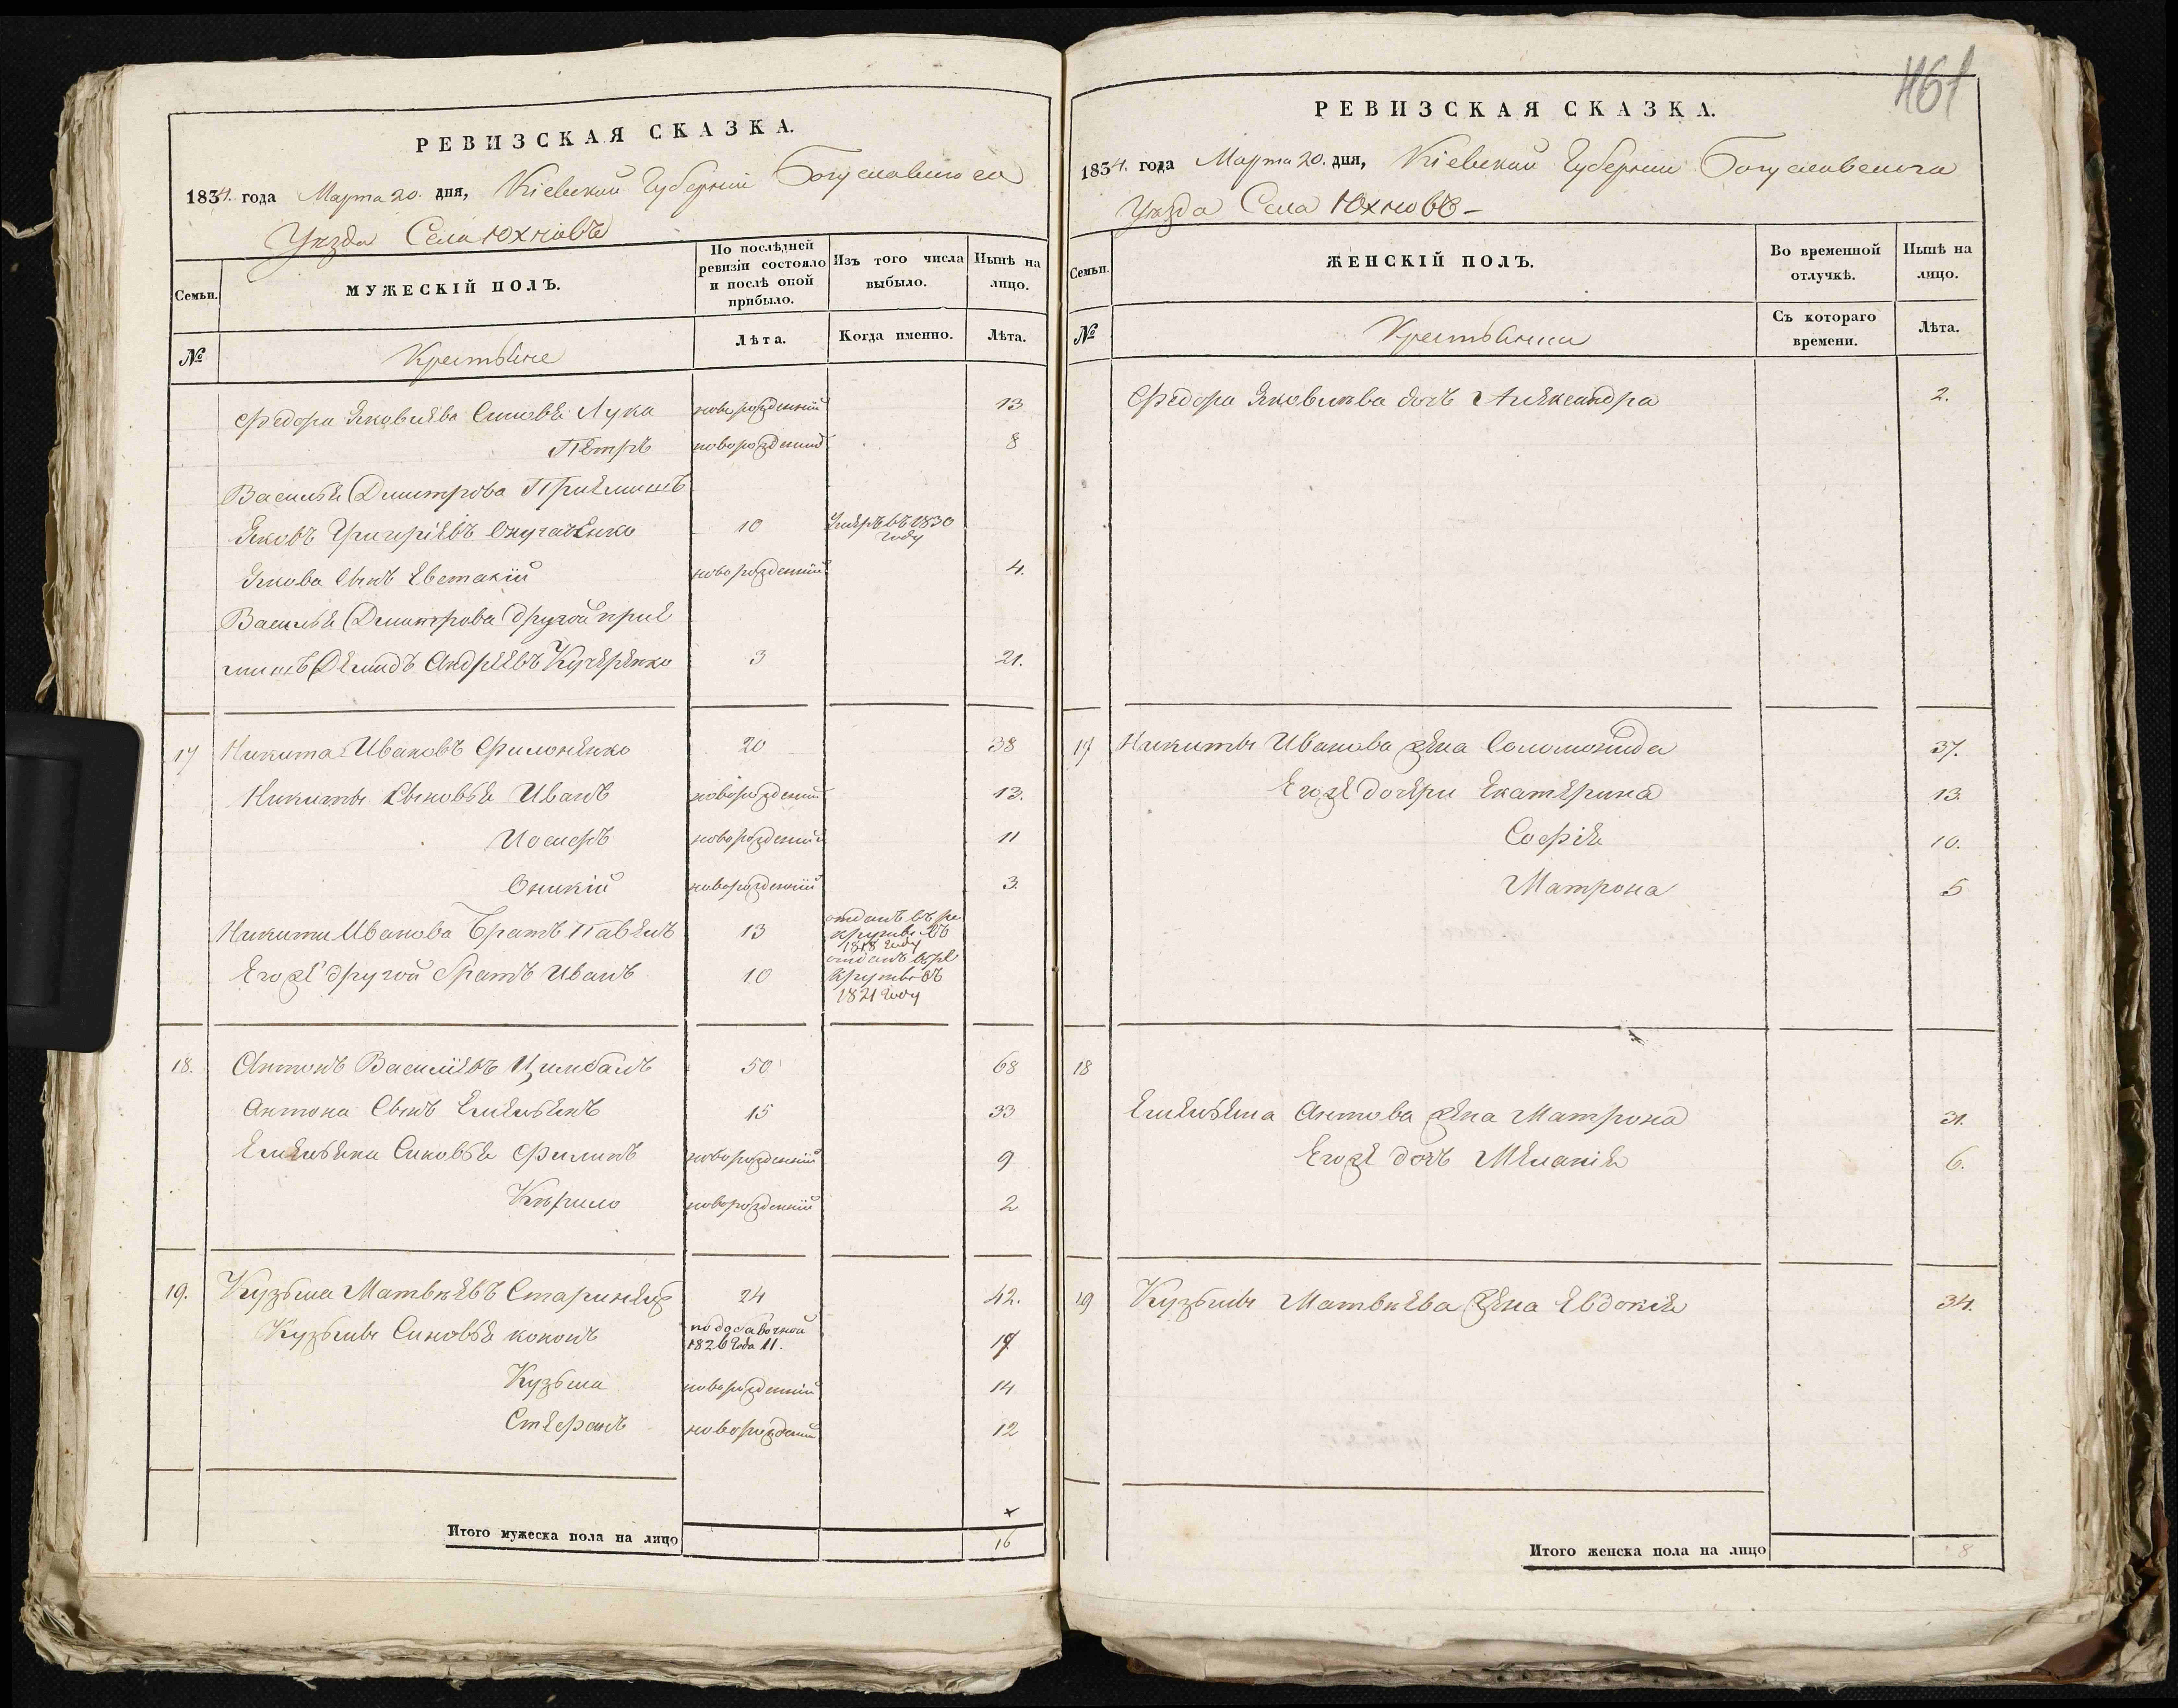 РЕВИЗСКАЯ СКАЗКА.
1834. года Марта 20. дня, Кіевской Губерніи Богуславскаго
Уѣзда Села Юхновъ
Семьи.
МУЖЕСКІЙ ПОЛЪ.
По послѣдней ревизіи состояло и послѣ оной прибыло.
Изъ того числа выбыло.
Нынѣ на лицо.
№
Крестьяне
Лѣта.
Когда именно.
Лѣта.
Федора Яковлева Синовья Лука новорожденный 13
Петръ новорожденный 8
Василья Димитрова Приемишъ
Яковъ Григоріевъ 10 Умеръ въ 1830
году
Якова Сынъ Евстакій новорожденный 4.
Василья Димитрова другой прие
мишъ Демидъ Андреевъ Кучеренко 3 21.
17 Никита Ивановъ Филоненко 20 38
Никиты Сыновья Иванъ новорожденный 13.
Иосифъ новорожденный 11
Оникій новорожденный 3.
Никиты Иванова Братъ Павелъ 13 отданъ въ ре
круты въ
1818 году
Егоже другой братъ Иванъ 10 отданъ въ ре
круты въ
1821 году
18. Антонъ Василіевъ Цимбалъ 50 68
Антона Сынъ Емельянъ 15 33
Емельяна Синовья Филипъ новорожденный 9
Кирило новорожденный 2
19. Кузьма Матвѣевъ 24 42.
Кузьмы Синовья Кононъ по добавочной
1826 года 11. 17
Кузьма новорожденный 14
Стефанъ новорожденный 12
Итого мужеска пола на лицо 16
461
РЕВИЗСКАЯ СКАЗКА.
1834. года Марта 20. дня, Кіевской Губерніи Богуславскаго
Уѣзда Села Юхновъ-
Семьи.
ЖЕНСКІЙ ПОЛЪ.
Во временной отлучкѣ.
Нынѣ на лицо.
№
Крестьянки
Съ котораго времени.
Лѣта.
Федора Яковлева дочь Александра 2.
17 Никиты Иванова жена Соломонида 37.
Егоже дочери Екатерина 13.
Софія 10.
Матрона 5
18
Емельяна Антова жена Матрона 31.
Егоже дочь Меланія 6.
19 Кузьмы Матвѣева жена Евдокія 34.
Итого женска пола на лицо 8